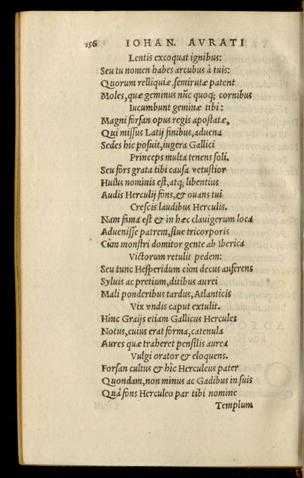 156 IOHAN. AVRATI
Lentis excoquat ignibus:
Seu tu nomen habes arcubus à tuis:
Quorum relliquiæ, semirutæ patent
Moles, quæ geminus nũc quoq; cornibus
Iucumbunt geminæ tibi:
Magni forsan opus regis apostatæ,
Qui missus Latij finibus, aduena
Sedes hic posuit, iugera Gallici
Princeps multa tenens soli.
Seu fors grata tibi causa vetustior
Huius nominis est, atq; libentius
Audis Herculij fons, & ouans tui
Crescis laudibus Herculis.
Nam fama est & in hæc clauigerum loca
Aduenisse patrem, siue tricorporis
Cùm monstri domitor gente ab Iberica
Victorum retulit pedem:
Seu tunc Hesperidum cùm decus auferens
Syluis ac pretium, ditibus aurei
Mali ponderibus tardus, Atlanticis
Vix vndis caput extulit.
Hinc Graijs etiam Gallicus Hercules
Notus, cuius erat forma, catenula
Aures quæ traheret pensilis aurea
Vulgi orator & eloquens.
Forsan cultus & hîc Herculeus pater
Quondam, non minus ac Gadibus in suis
Quâ fons Herculeo par tibi nomine
Templum